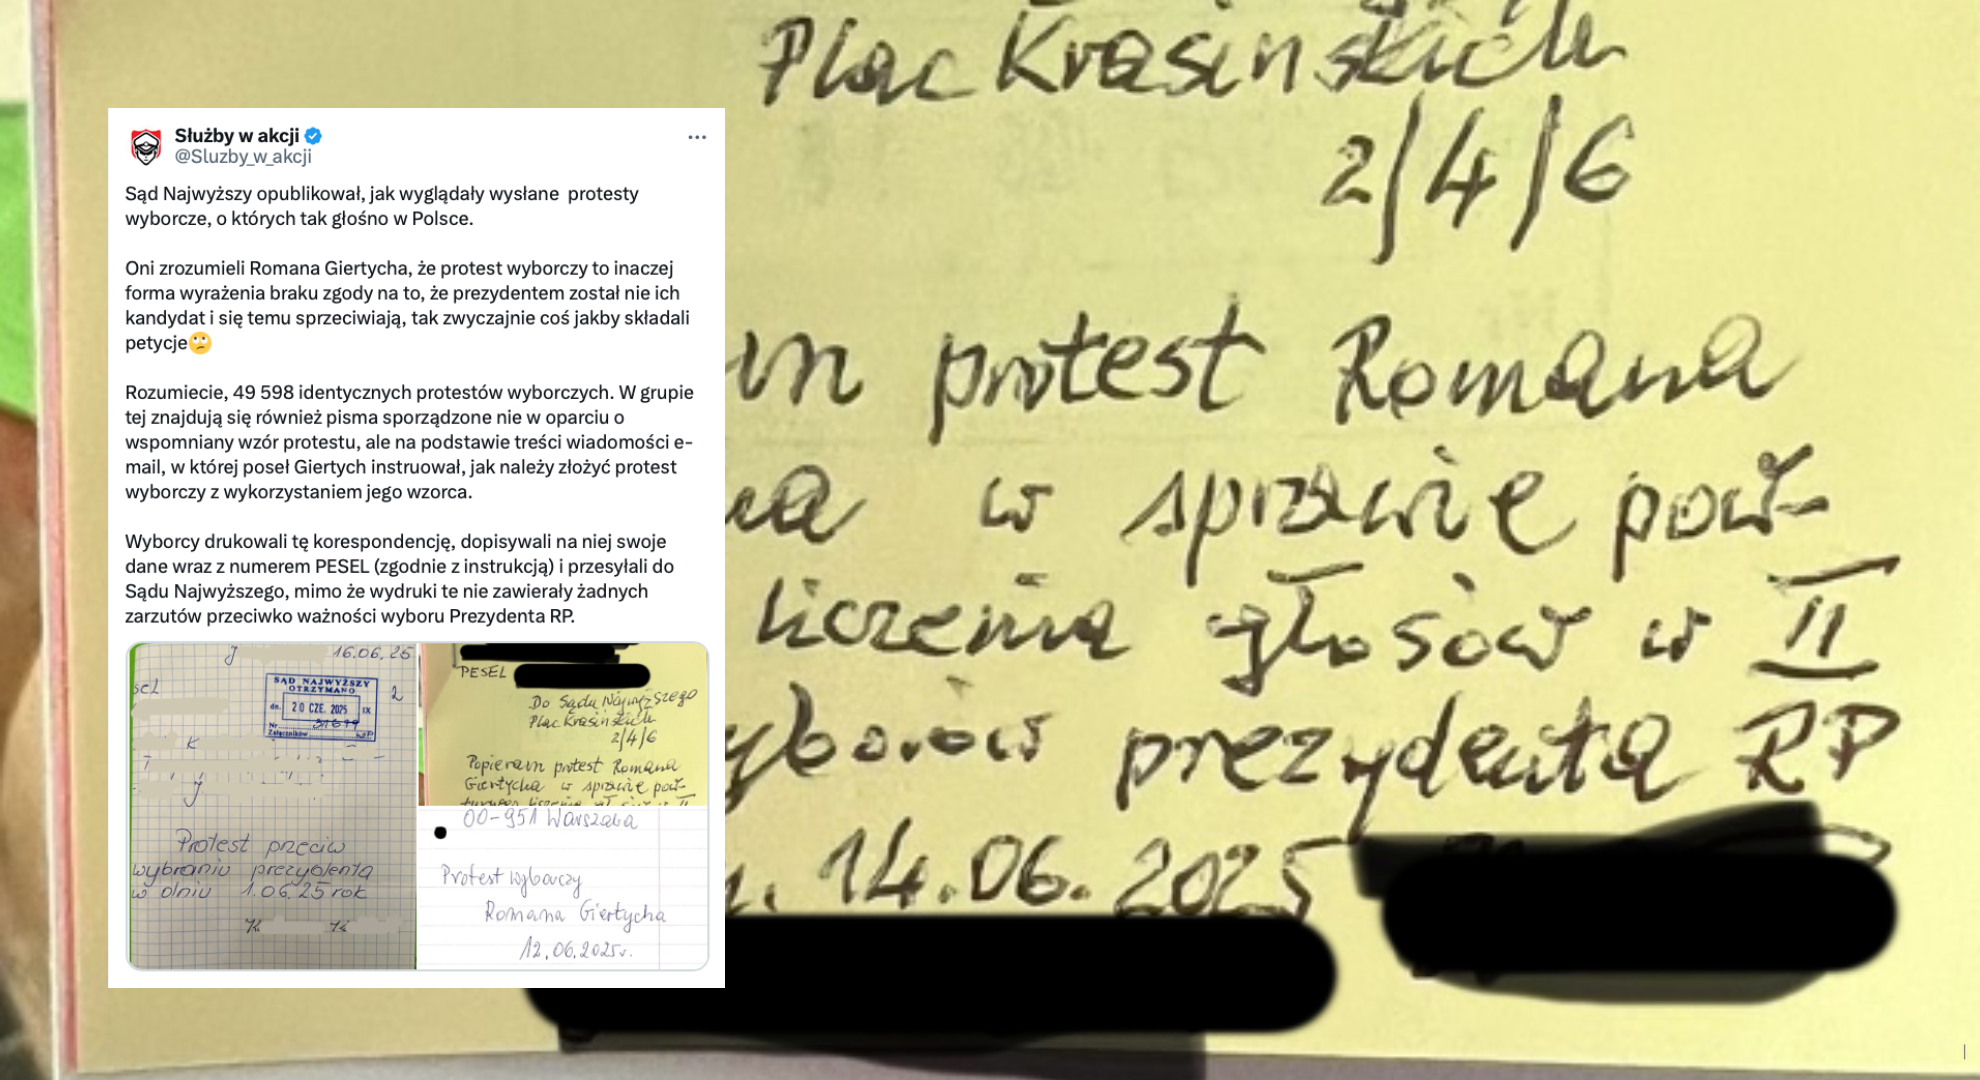 Służby w akcji
@Sluzby_w_akcji
Sąd Najwyższy opublikował, jak wyglądały wysłane protesty
wyborcze, o których tak głośno w Polsce.
Oni zrozumieli Romana Giertycha, że protest wyborczy to inaczej
forma wyrażenia braku zgody na to, że prezydentem został nie ich
kandydat i się temu sprzeciwiają, tak zwyczajnie coś jakby składali
petycje🙄
Rozumiecie, 49 598 identycznych protestów wyborczych. W grupie
tej znajdują się również pisma sporządzone nie w oparciu o
wspomniany wzór protestu, ale na podstawie treści wiadomości e-
mail, w której poseł Giertych instruował, jak należy złożyć protest
wyborczy z wykorzystaniem jego wzorca.
Wyborcy drukowali tę korespondencję, dopisywali na niej swoje
dane wraz z numerem PESEL (zgodnie z instrukcją) i przesyłali do
Sądu Najwyższego, mimo że wydruki te nie zawierały żadnych
zarzutów przeciwko ważności wyboru Prezydenta RP.
16.06.25
SĄD NAJWYŻSZY
OTRZYMANO
dn. 20 CZE. 2025 IX
Nr
Załączników
2
Protest przeciw
wybraniu prezydenta
w dniu 1.06.25 rok
PESEL
Do Sądu Najwyższego
Plac Krasińskich
2/4/6
Popieram protest Romana
Giertycha w sprawie pow-
00-951 Warszawa
Protest wyborczy
Romana Giertycha
12.06.2025r.
Plac Krasińskich
2/4/6
m protest Romana
ha w sprawie pow-
liczenia głosów w II
yborów prezydenta RP
14.06.2025